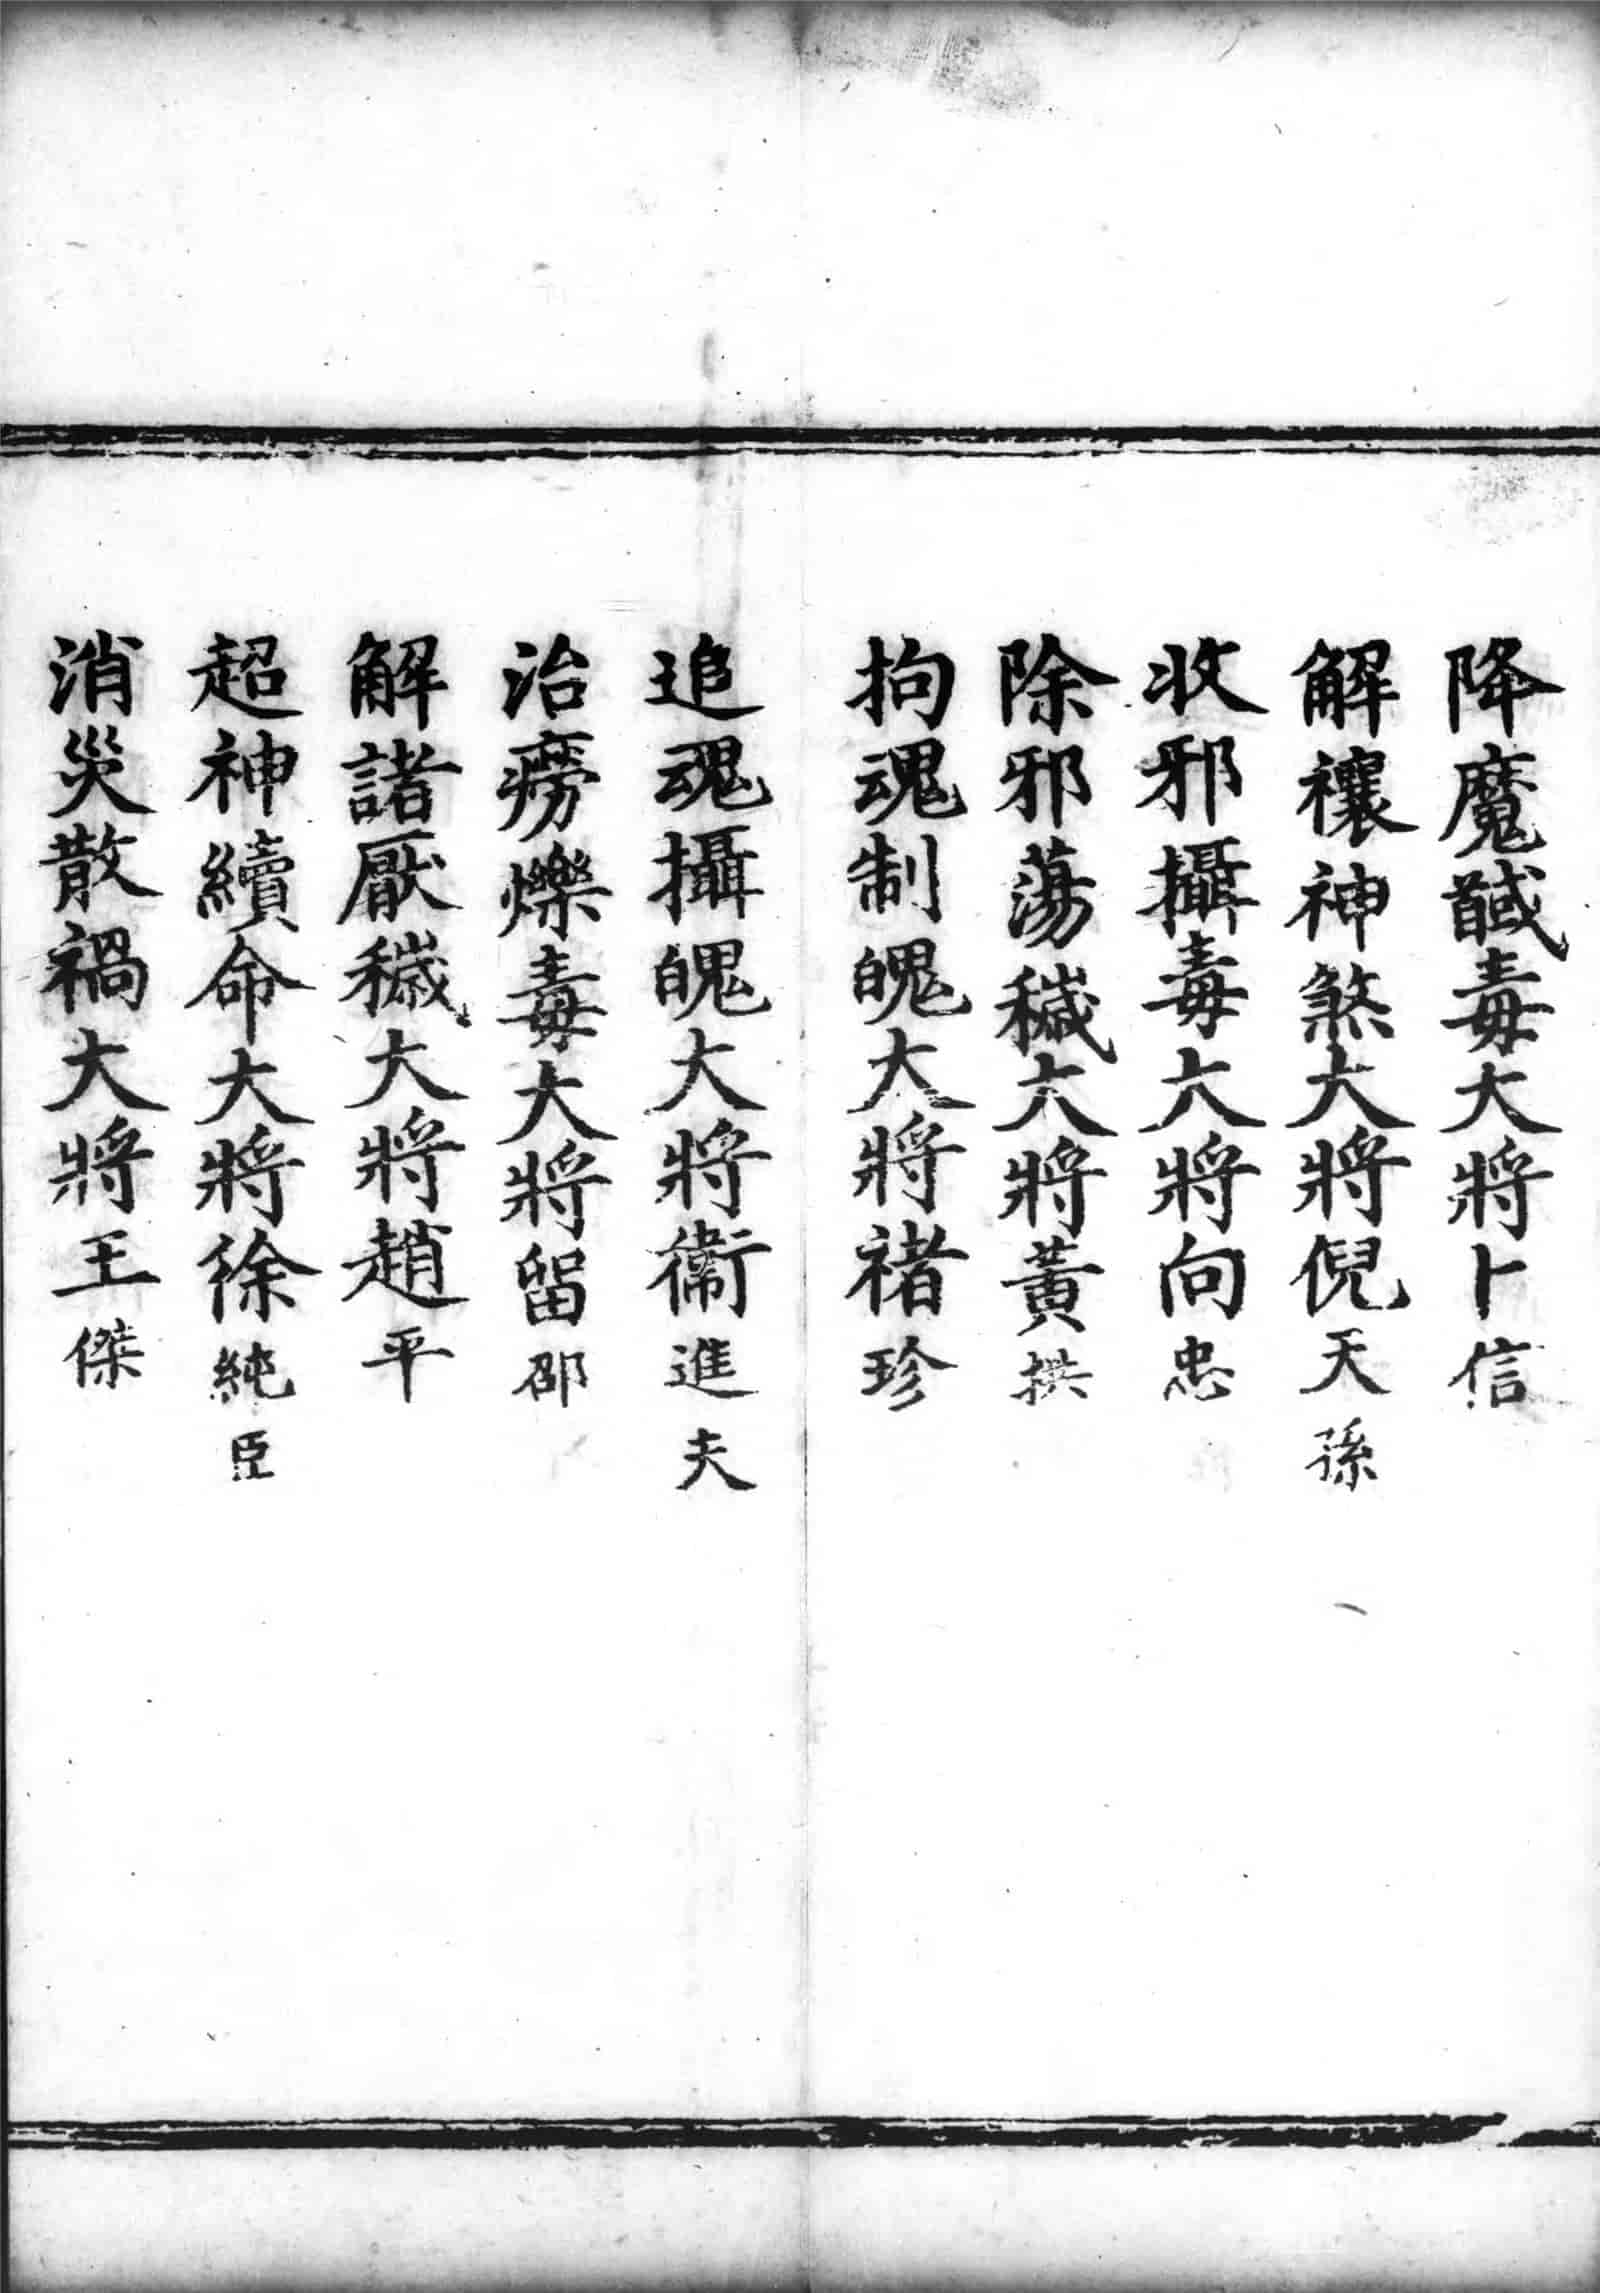 降魔馘毒大將卜信
解禳神煞大將倪天孫
收邪攝毒大將向忠
除邪蕩穢大將黃拱
拘魂制魄大將褚珍
追魂攝魄大將衞進夫
治癆爍毒大將留邵
解諸厭穢大將趙平
超神續命大將徐純臣
消災散禍大將王傑